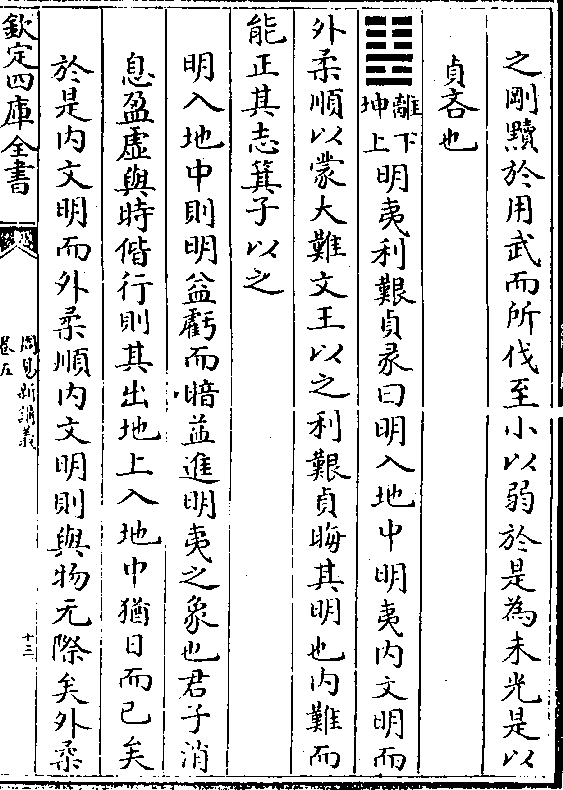 之剛黷於用武而所伐至小以弱於是為未光是以
貞吝也
䷣離下坤上明夷利艱貞彖曰明入地中明夷内文明而
外柔順以蒙大難文王以之利艱貞晦其明也内難而
能正其志箕子以之
明入地中則明益虧而暗益進明夷之象也君子消
息盈虛與時偕行則其出地上入地中猶日而已矣
於是内文明而外柔順内文明則與物无際矣外柔
欽定四庫全書
周易新講義
卷五
十三